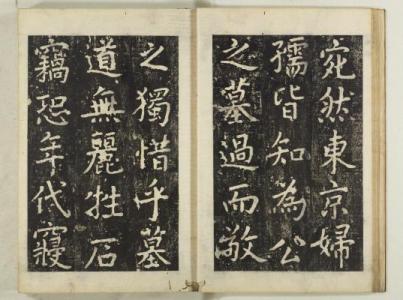 宛然東京婦
孺皆知為公
之墓過而敬
之獨惜乎墓
道無麗牲石
竊恐年代寖